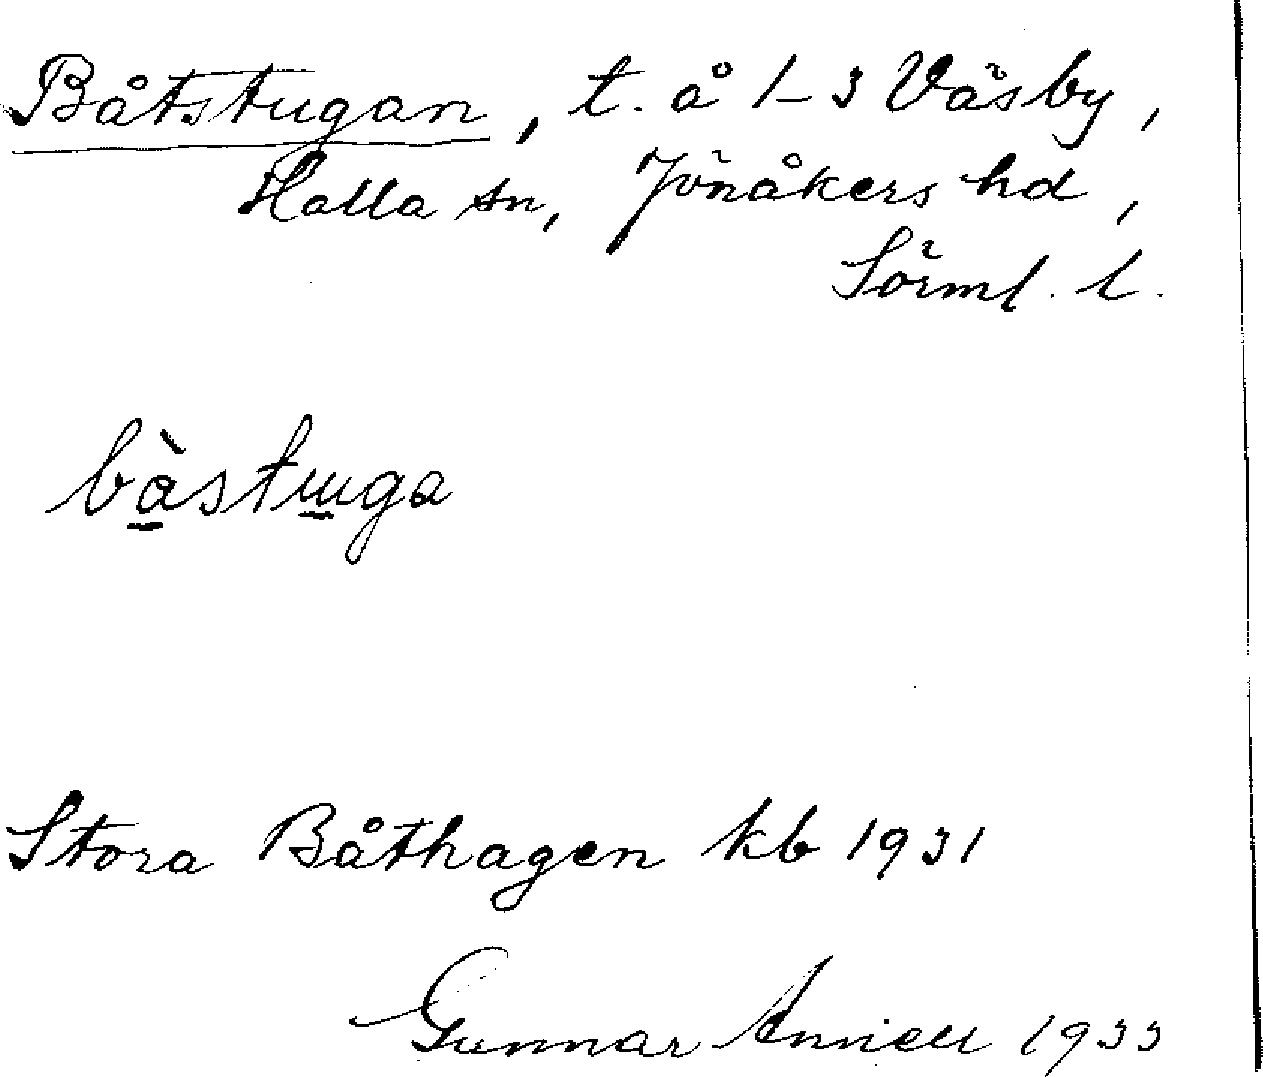 Båtstugan, t. å 1-3 Väsby,
Halla sn, Jönåkers hd,
Sörml. l.
bàstuga
Stora Båthagen kb 1931
Gunnar Anniell 1933